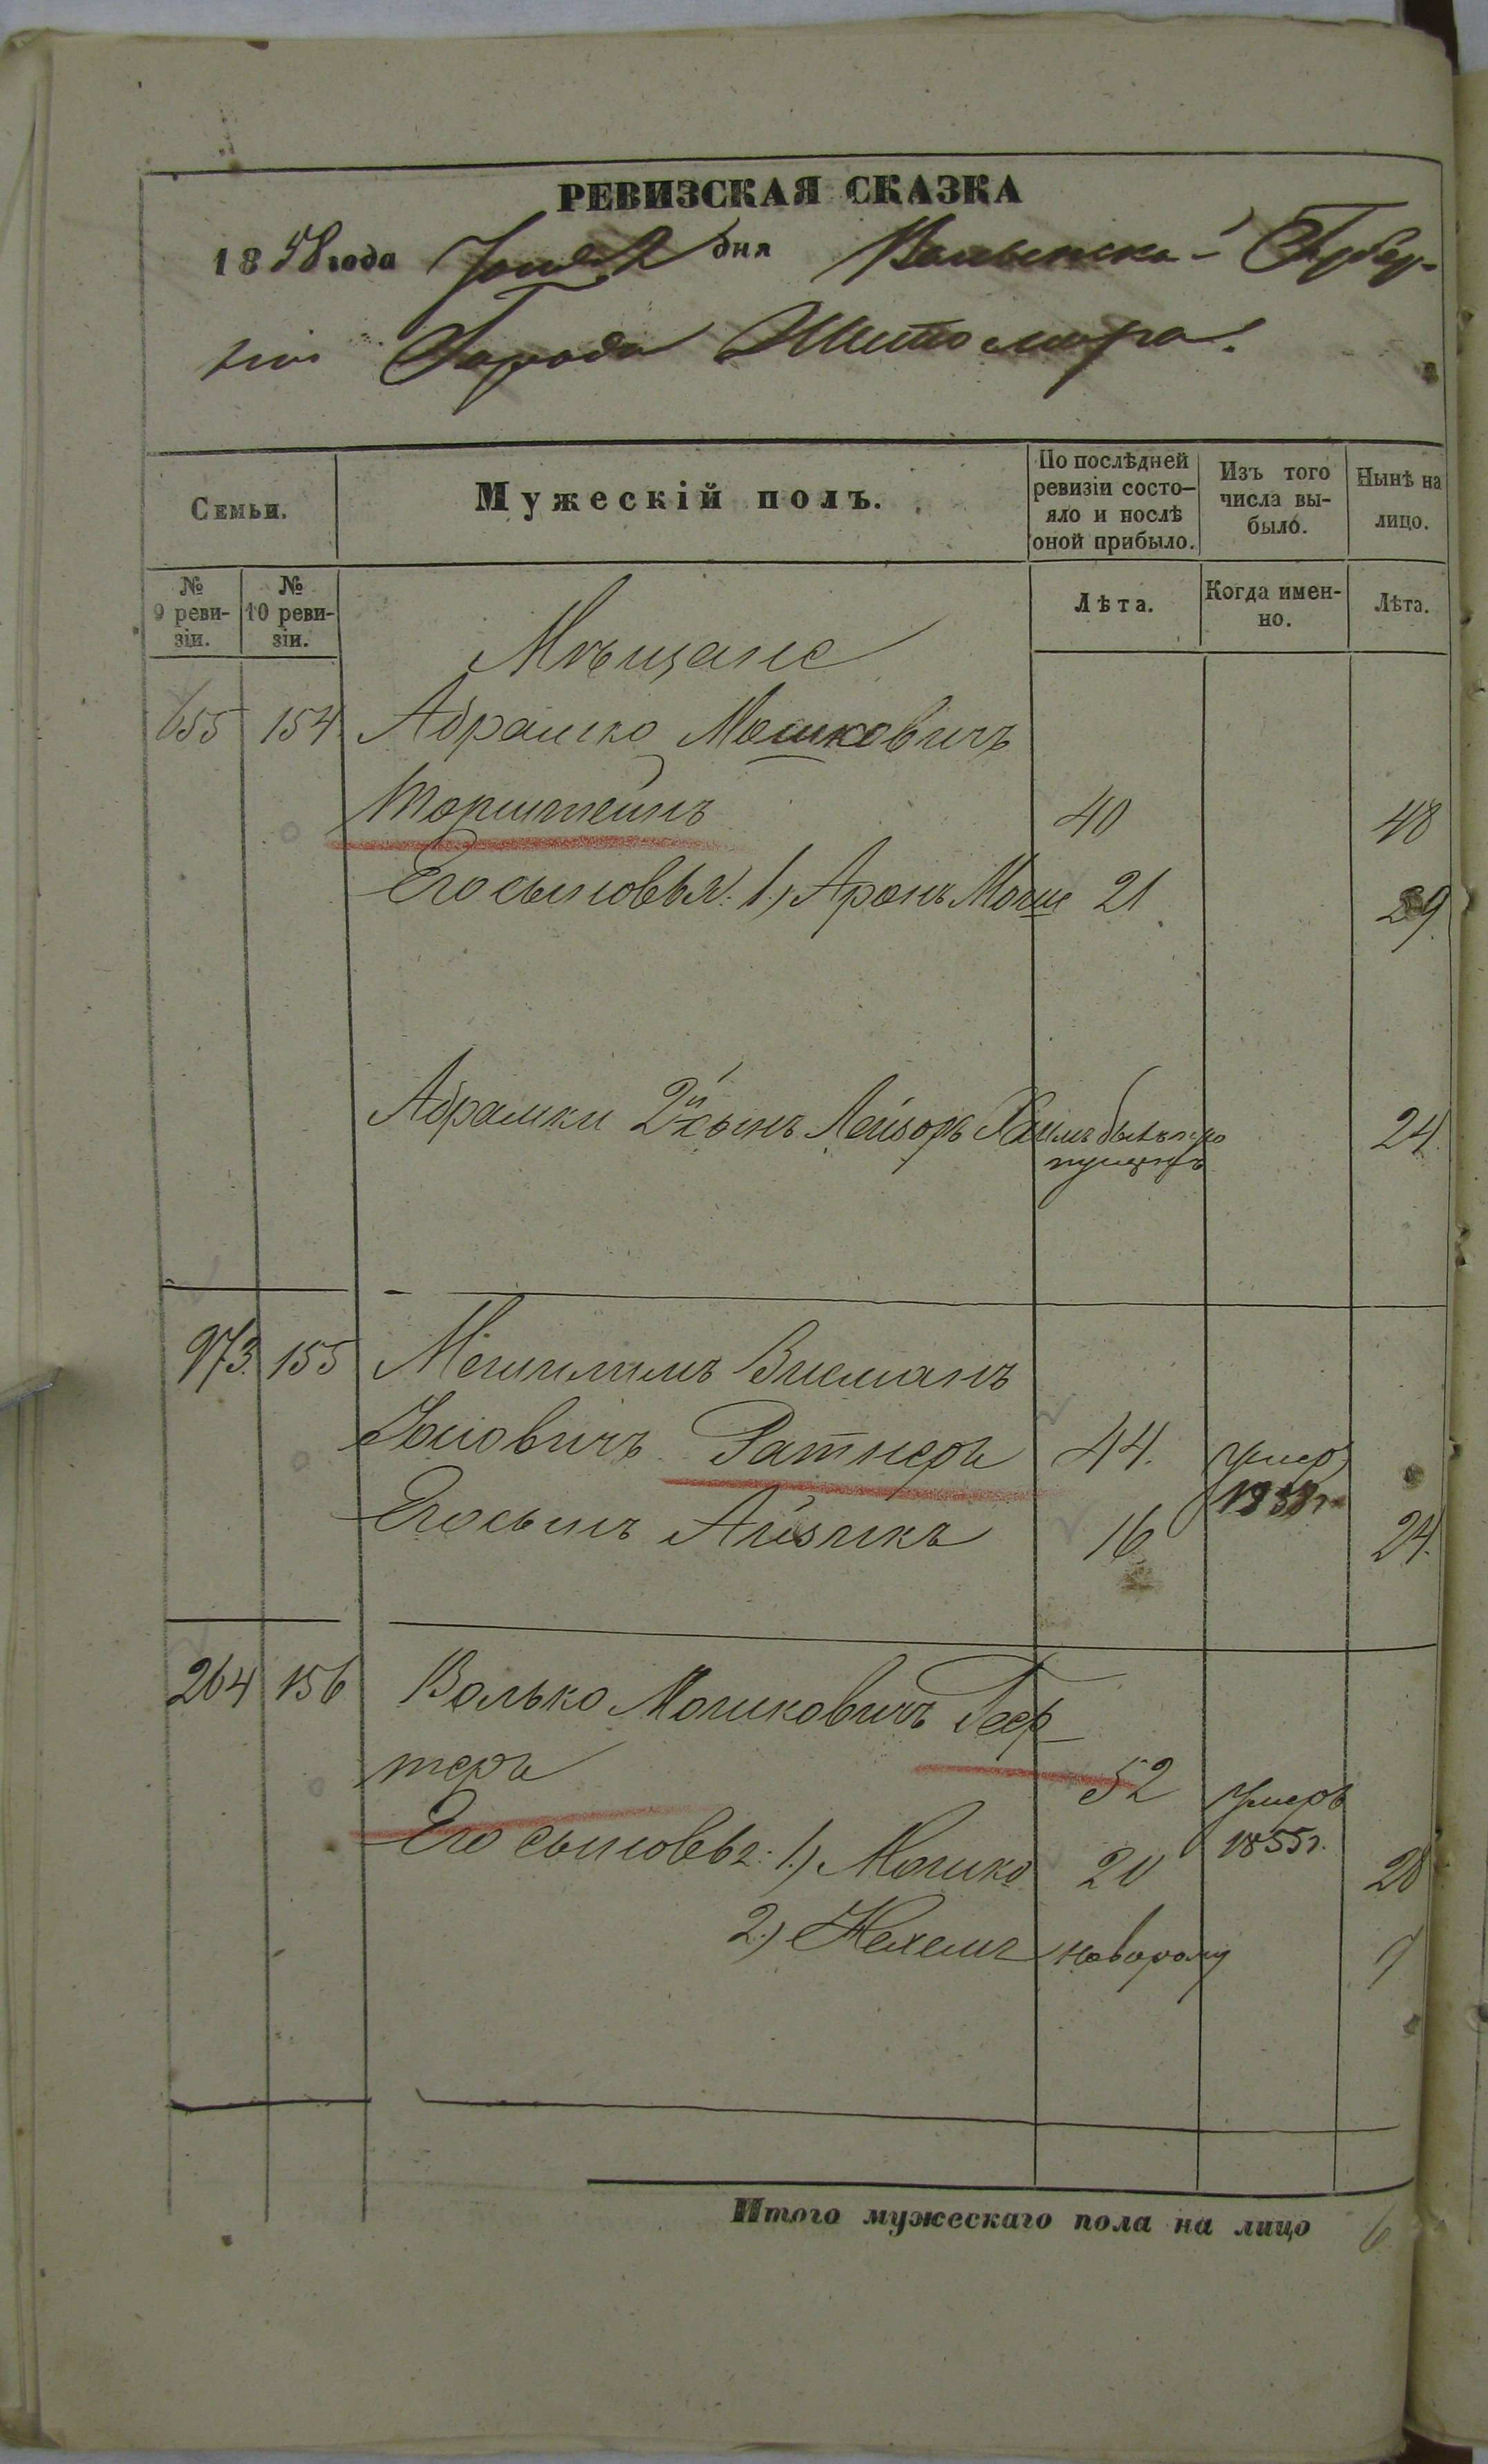 РЕВИЗСКАЯ СКАЗКА
1858 года дня Волынской Губер-
нiи Города Житомира.
Семьи.
Мужескій полъ.
По послѣдней ревизіи состо-яло и послѣ оной прибыло.
Изъ того числа вы-было.
Нынѣ на лицо.
№ 9 реви-зіи.
№ 10 реви-зіи.
Лѣта.
Когда имен-но.
Лѣта.
Мѣщане
655 154 Абрамко Мошковичъ
Торштейнъ 40 48
Его сыновья: 1) Аронъ Мошко 21 29
Абрамки 2й сынъ Лейзоръ Хаимъ былъ про 24
пущенъ
973. 155 Мешилимъ Висманъ
Іосіовичъ Ратнеръ 44. умер
1858 г
Его сынъ Айзикъ 16 24.
264 156 Волько Мошковичъ Геер
теръ 52 умеръ
1855 г.
Его сыновья: 1.) Мошко 20 28
2.) Нехемъ новорож
Итого мужескаго пола на лицо 6